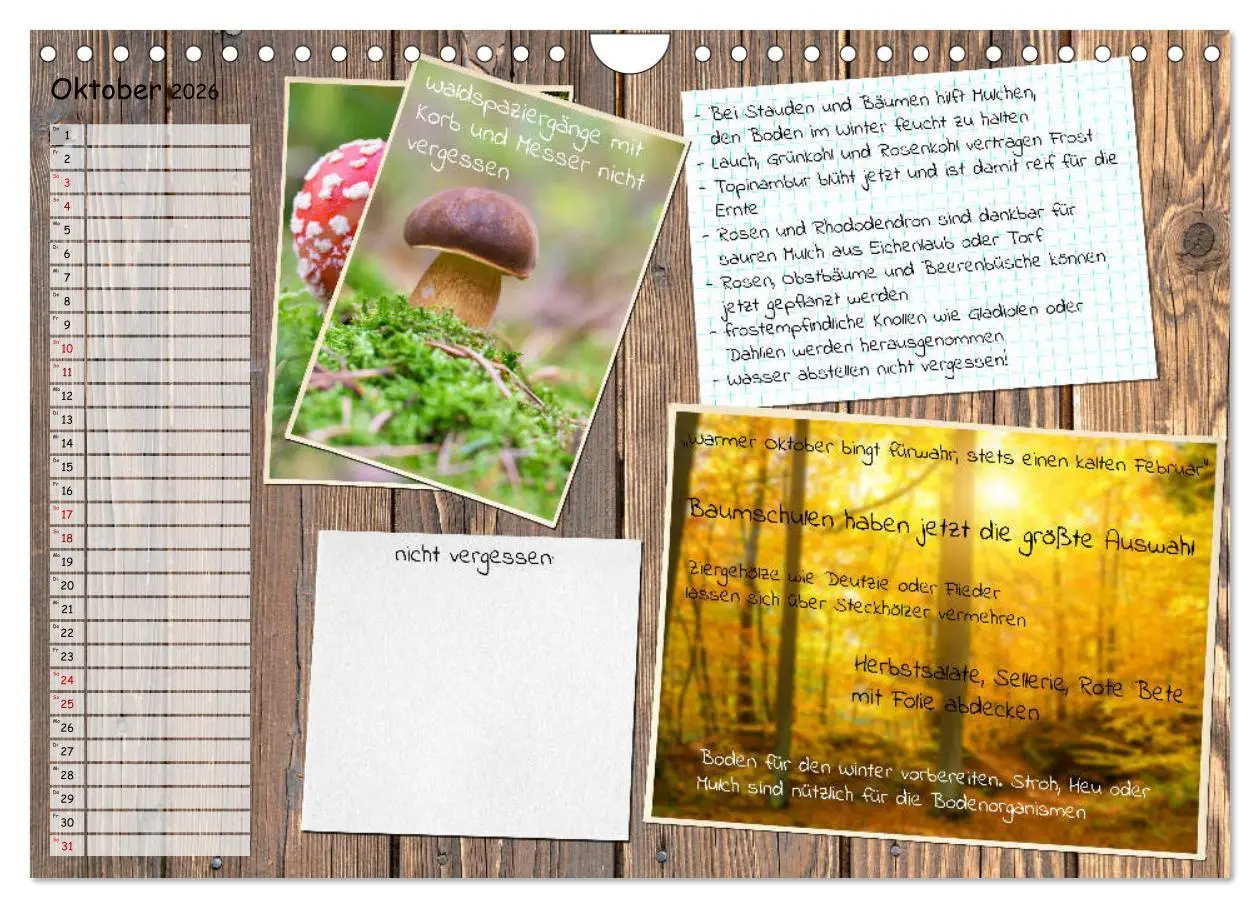 Oktober 2026
Do 1
Fr 2
Sa 3
So 4
Mo 5
Di 6
Mi 7
Do 8
Fr 9
Sa 10
So 11
Mo 12
Di 13
Mi 14
Do 15
Fr 16
Sa 17
So 18
Mo 19
Di 20
Mi 21
Do 22
Fr 23
Sa 24
So 25
Mo 26
Di 27
Mi 28
Do 29
Fr 30
Sa 31
Waldspaziergänge mit
Korb und Messer nicht
vergessen
- Bei Stauden und Bäumen hilft Mulchen,
den Boden im Winter feucht zu halten
- Lauch, Grünkohl und Rosenkohl vertragen Frost
- Topinambur blüht jetzt und ist damit reif für die
Ernte
- Rosen und Rhododendron sind dankbar für
sauren Mulch aus Eichenlaub oder Torf
- Rosen, Obstbäume und Beerenbüsche können
jetzt gepflanzt werden
- frostempfindliche Knollen wie Gladiolen oder
Dahlien werden herausgenommen
- Wasser abstellen nicht vergessen!
nicht vergessen:
„Warmer Oktober bingt fürwahr, stets einen kalten Februar"
Baumschulen haben jetzt die größte Auswahl
Ziergehölze wie Deutzie oder Flieder
lassen sich über Steckhölzer vermehren
Herbstsalate, Sellerie, Rote Bete
mit Folie abdecken
Boden für den Winter vorbereiten. Stroh, Heu oder
Mulch sind nützlich für die Bodenorganismen